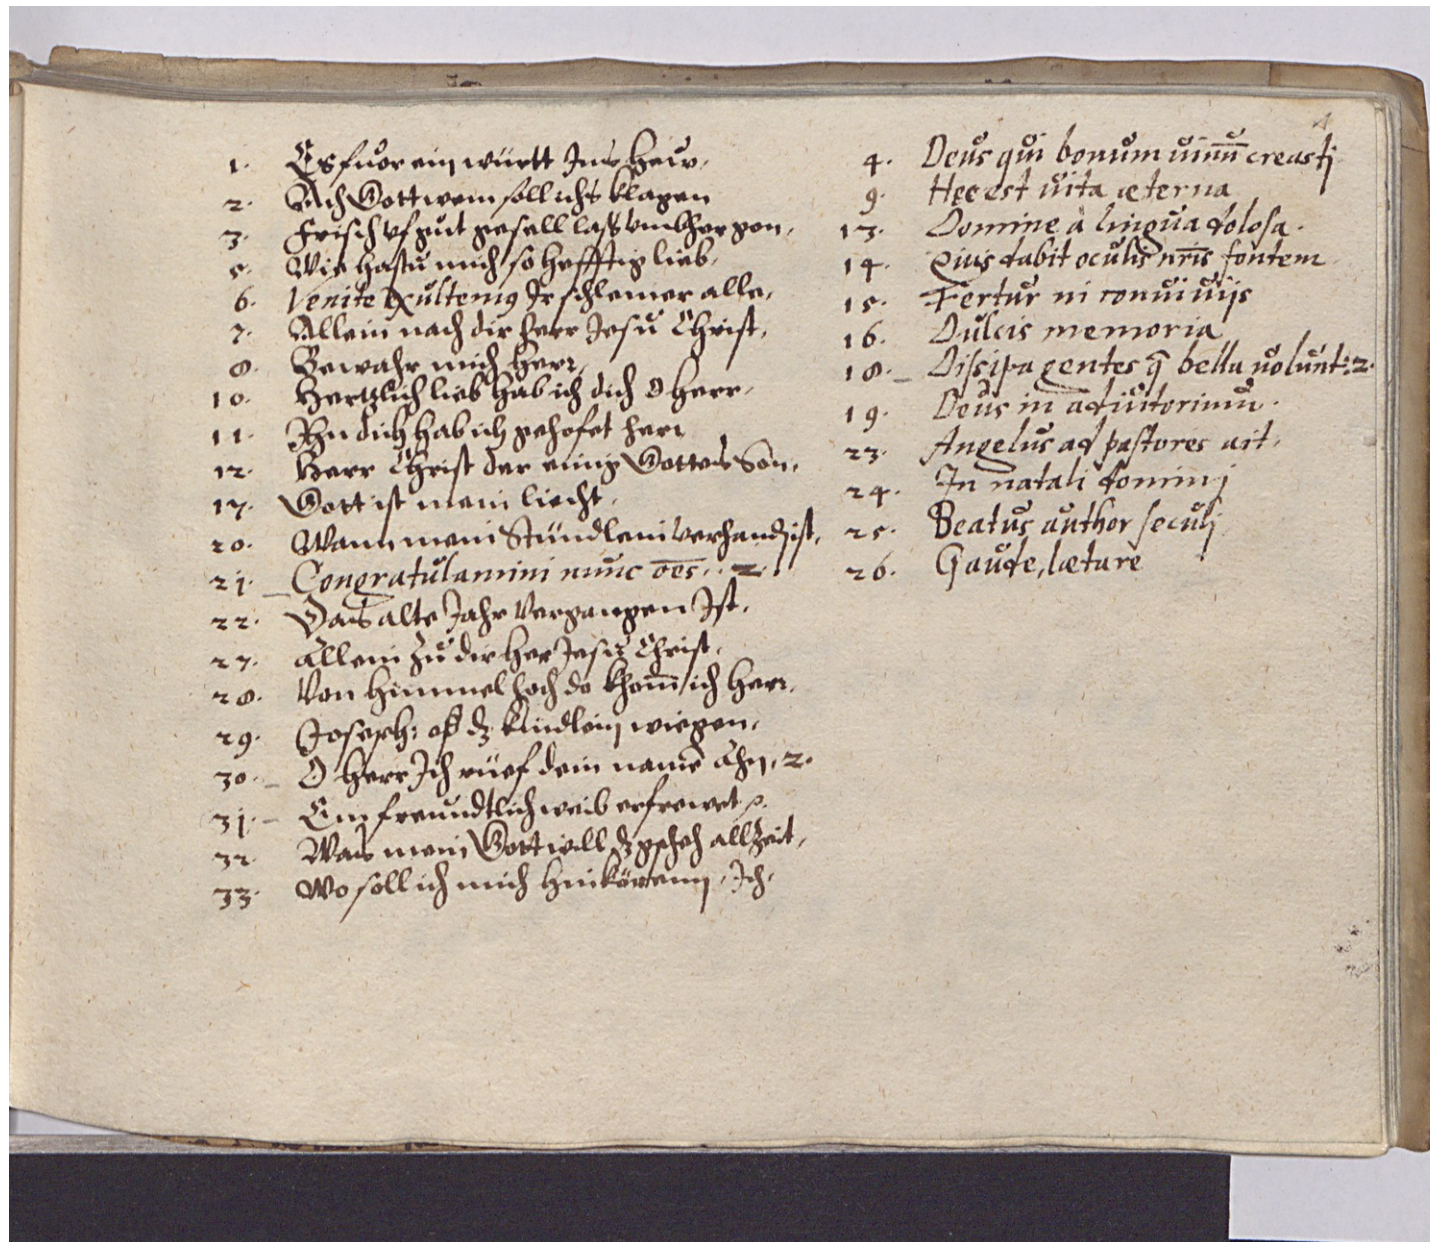 4
1. Es fuor ein württ Ins Heuw.
2. Ach Gott wem soll ichs klagen
3. Frisch uf gut gesell lass umbher gon.
5. Wie hastu mich so hefftig lieb.
6. Venite Exultemus Ir schlemer alle.
7. Allein nach dir herr Jesu Christ.
8. Bewahr mich Herr.
10. Hertzlich lieb hab ich dich O herr.
11. An dich hab ich gehofet herr
12. Herr Christ der einig Gottes Son.
17. Gott ist mein liecht.
20. Wann mein Stündlein verhanden ist.
21. Congratulamini nunc o̅e̅s. 2.
22. Das alte Jahr vergangen Ist.
27. Allein Zu dir Herr Jesu Christ.
28. Von Himmel hoch do khom̅ ich Herr.
29. Joseph: dz kindlein wiegen.
30. O Herr Ich rüef dein namē Ahn. 2.
31. Ein freundtlich weib erfrewet
32. Was mein Gott will dz gscheh allzeit.
33. Wo soll ich mich hin köreenn. Ich.
4. Deus qui bonum uinu̅ creasti
9. Hęc est uita æterna
13. Domine à lingua dolosa.
14. Quis dabit oculis nr̅is fontem
15. Fertur in conuiuijs
16. Dulcis memoria
18. Dissipa gentes q̅ bella uolunt: 2.
19. Deus in adiutorium.
23. Angelus ad pastores ait.
24. In natali domini
25. Beatus author seculi
26. Gaude, lætare